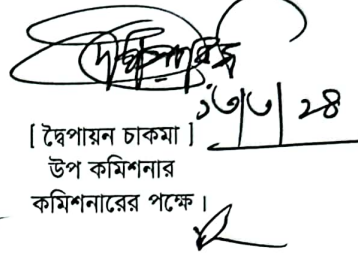 ১৩|৩| 28
[ দ্বৈপায়ন চাকমা ]
উপ কমিশনার
কমিশনারের পক্ষে।